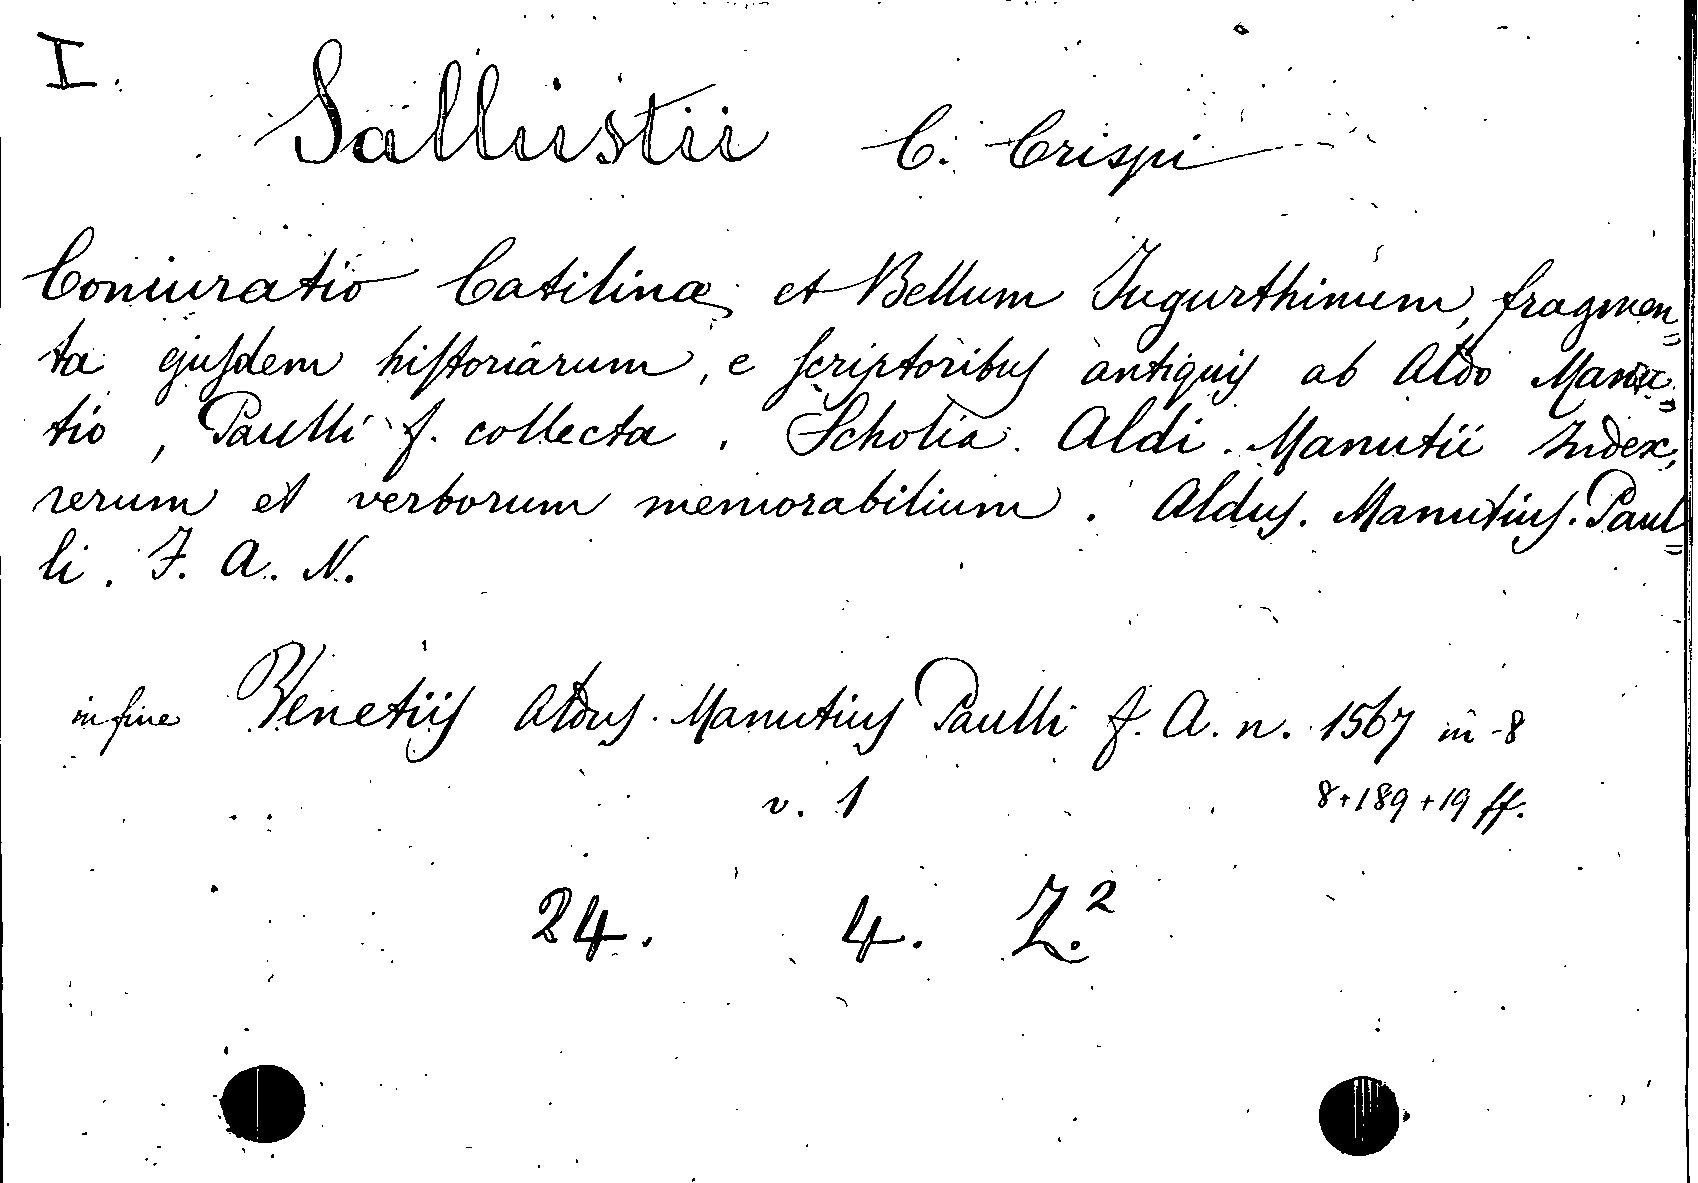 I.
Sallustii C. Crispi
Coniuratio Catilinæ et Bellum Jugurthinum, fragmen=
ta ejusdem historiarum, e scriptoribus antiquis ab Aldo Manu=
tio, Paulli f. collecta. Scholia. Aldi. Manutii Index,
rerum et verborum memorabilium. Aldus. Manutius. Paul=
li. F. A. N.
in fine Venetiis Aldus. Manutius Paulli f. A. n. 1567 in-8
v. 1 8+189+19 ff.
24. 4. Z.²